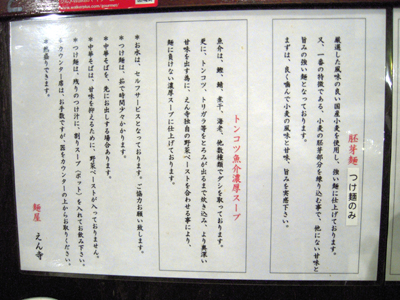 胚芽麺 つけ麺のみ
厳選した風味の良い国産小麦を使用し、強い麺に仕上げております。
又、一番の特徴である、小麦の胚芽部分を練り込む事で、他にない甘味と
旨みの強い麺となっております。
まずは、良く噛んで小麦の風味と甘味、旨みを実感下さい。
トンコツ魚介濃厚スープ
魚介は、鰹、鯖、煮干、海老、他数種類でダシを取っております。
更に、トンコツ、トリガラ等をとろみが出るまで炊き込み、より奥深い
甘味を出す為に、えん寺独自の野菜ペーストを合わせる事により、
麺に負けない濃厚スープに仕上げております。
*お水は、セルフサービスとなっております。ご協力お願い致します。
*つけ麺は、茹で時間少々かかります。
*中華そばを、先にお出しする場合あります。
*中華そばは、甘味を抑えるために、野菜ペーストが入っておりません。
*つけ麺は、残りのつけ汁に、割りスープ(ポット)を入れてお飲み下さい。
*カウンター席は、お手数ですが、器をカウンターの上からお取りください。
*熱盛りできます。
麺屋 えん寺